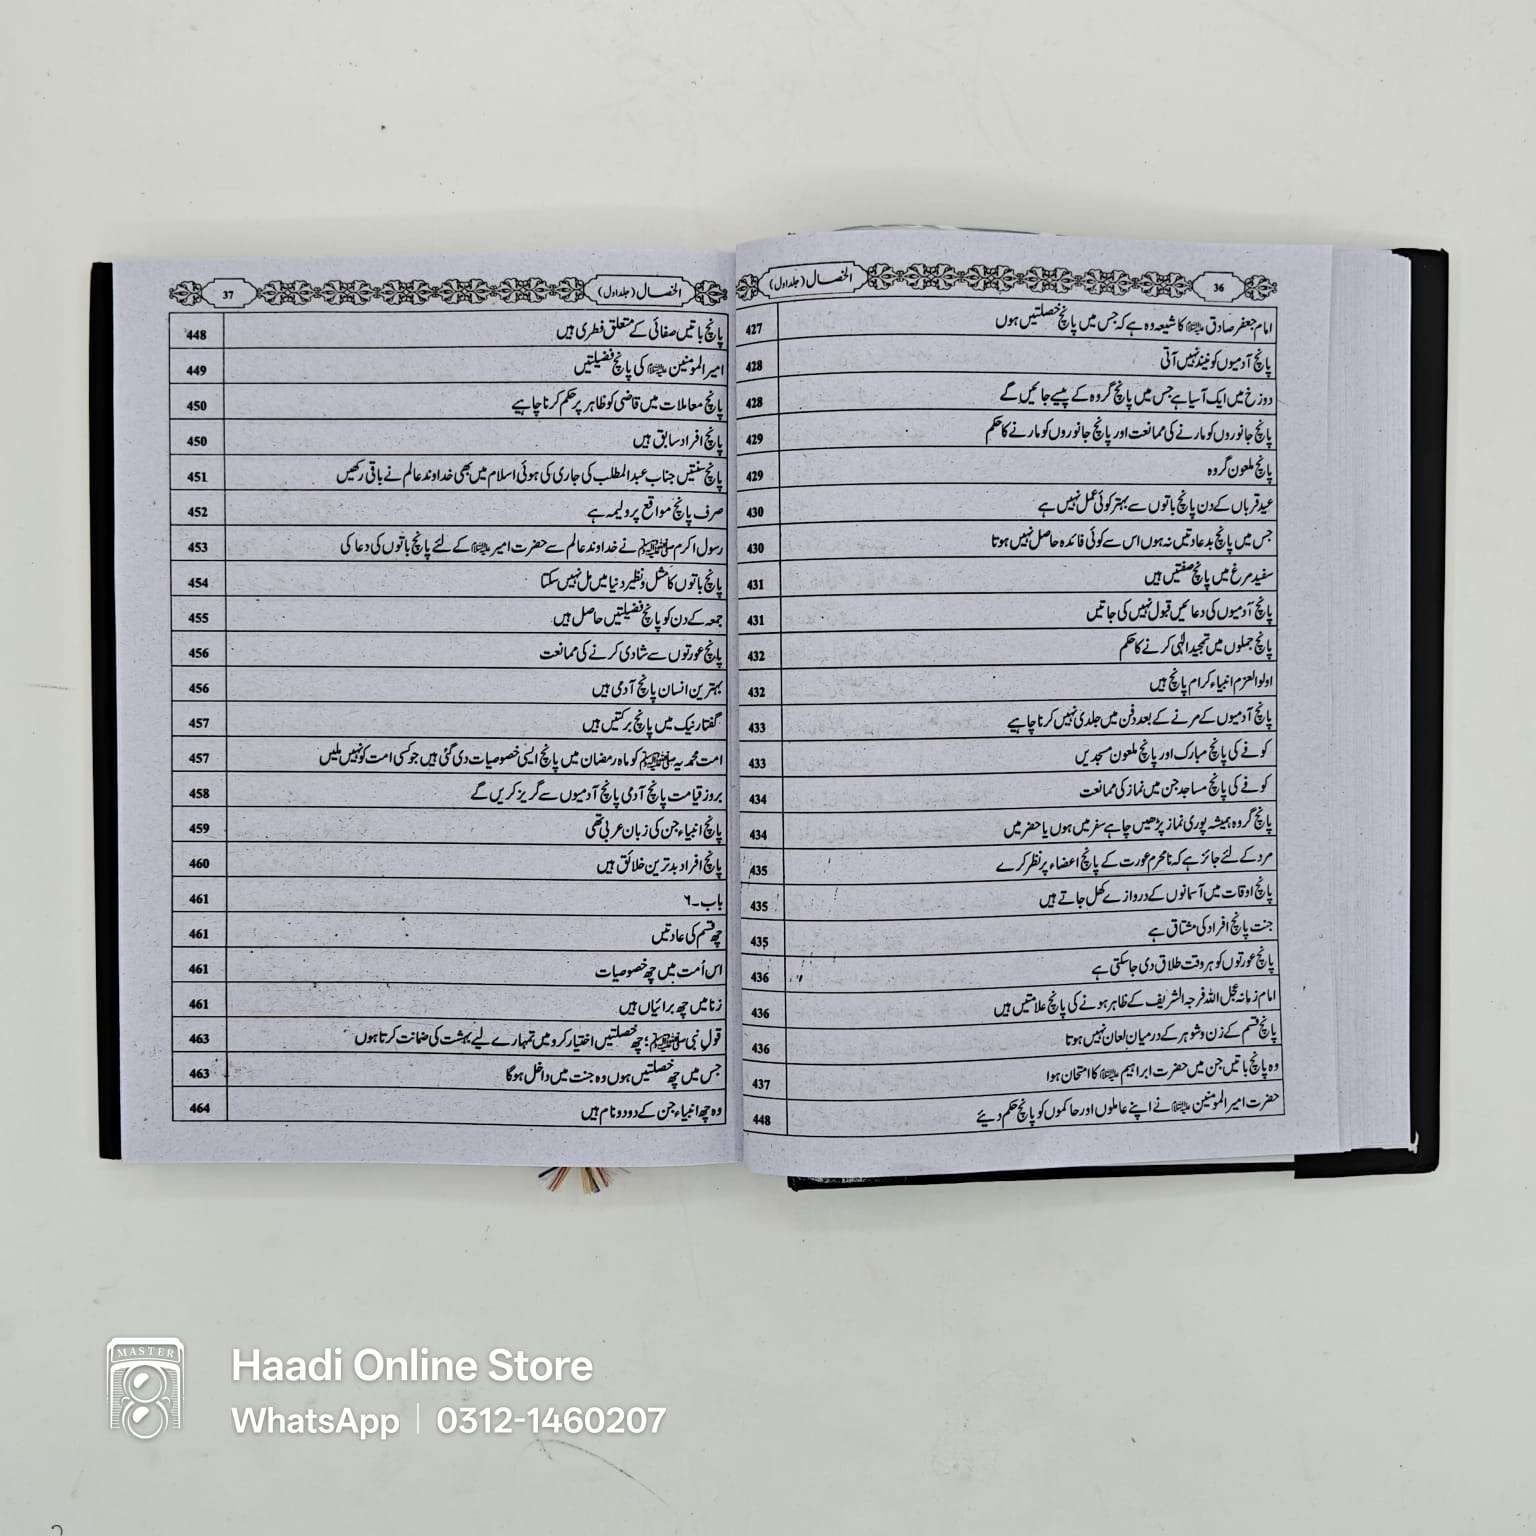 36
الخصال (جلد اول)
امام جعفر صادق علیہ السلام کا شیعہ وہ ہے کہ جس میں پانچ خصلتیں ہوں 427
پانچ آدمیوں کو نیند نہیں آتی 428
دوزخ میں ایک آسیا ہے جس میں پانچ گروہ کے پیسے جائیں گے 428
پانچ جانوروں کو مارنے کی ممانعت اور پانچ جانوروں کو مارنے کا حکم 429
پانچ ملعون گروہ 429
عید قرباں کے دن پانچ باتوں سے بہتر کوئی عمل نہیں ہے 430
جس میں پانچ بد عادتیں نہ ہوں اس سے کوئی فائدہ حاصل نہیں ہوتا 430
سفید مرغ میں پانچ صفتیں ہیں 431
پانچ آدمیوں کی دعائیں قبول نہیں کی جاتیں 431
پانچ جملوں میں تمجید الٰہی کرنے کا حکم 432
اولوالعزم انبیاء کرام پانچ ہیں 432
پانچ آدمیوں کے مرنے کے بعد دفن میں جلدی نہیں کرنا چاہیے 433
کوفے کی پانچ مبارک اور پانچ ملعون مسجدیں 433
کوفے کی پانچ مساجد جن میں نماز کی ممانعت 434
پانچ گروہ ہمیشہ پوری نماز پڑھیں چاہے سفر میں ہوں یا حضر میں 434
مرد کے لئے جائز ہے کہ نامحرم عورت کے پانچ اعضاء پر نظر کرے 435
پانچ اوقات میں آسمانوں کے دروازے کھل جاتے ہیں 435
جنت پانچ افراد کی مشتاق ہے 435
پانچ عورتوں کو ہر وقت طلاق دی جا سکتی ہے 436
امام زمانہ عجل اللہ فرجہ الشریف کے ظاہر ہونے کی پانچ علامتیں ہیں 436
پانچ قسم کے زن و شوہر کے درمیان لعان نہیں ہوتا 436
وہ پانچ باتیں جن میں حضرت ابراہیم علیہ السلام کا امتحان ہوا 437
حضرت امیر المومنین علیہ السلام نے اپنے عاملوں اور حاکموں کو پانچ حکم دیئے 448
الخصال (جلد اول)
37
پانچ باتیں صفائی کے متعلق فطری ہیں 448
امیر المومنین علیہ السلام کی پانچ فضیلتیں 449
پانچ معاملات میں قاضی کو ظاہر پر حکم کرنا چاہیے 450
پانچ افراد سابق ہیں 450
پانچ سنتیں جناب عبدالمطلب کی جاری کی ہوئی اسلام میں بھی خداوند عالم نے باقی رکھیں 451
صرف پانچ مواقع پر ولیمہ ہے 452
رسول اکرم ﷺ نے خداوند عالم سے حضرت امیر علیہ السلام کے لئے پانچ باتوں کی دعا کی 453
پانچ باتوں کا مثل و نظیر دنیا میں مل نہیں سکتا 454
جمعہ کے دن کو پانچ فضیلتیں حاصل ہیں 455
پانچ عورتوں سے شادی کرنے کی ممانعت 456
بہترین انسان پانچ آدمی ہیں 456
گفتار نیک میں پانچ برکتیں ہیں 457
امت محمدیہ ﷺ کو ماہ رمضان میں پانچ ایسی خصوصیات دی گئی ہیں جو کسی امت کو نہیں ملیں 457
بروز قیامت پانچ آدمی پانچ آدمیوں سے گریز کریں گے 458
پانچ انبیاء جن کی زبان عربی تھی 459
پانچ افراد بدترین خلائق ہیں 460
باب۔۶ 461
چھ قسم کی عادتیں 461
اس اُمت میں چھ خصوصیات 461
زنا میں چھ برائیاں ہیں 461
قول نبی ﷺ؛ چھ خصلتیں اختیار کرو میں تمہارے لیے بہشت کی ضمانت کرتا ہوں 463
جس میں چھ خصلتیں ہوں وہ جنت میں داخل ہوگا 463
وہ چھ انبیاء جن کے دو دو نام ہیں 464
MASTER
Haadi Online Store
WhatsApp | 0312-1460207